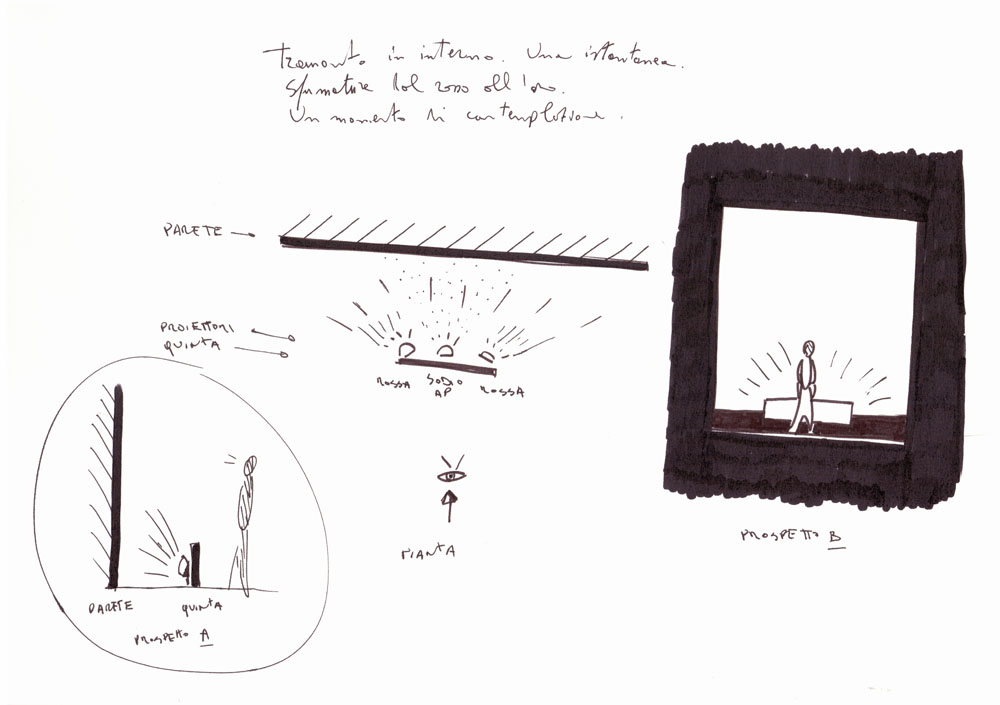 Tramonto in interno. Una istantanea.
Sfumature dal rosso all'oro.
Un momento di contemplazione.
PARETE
PROIETTORI
QUINTA
ROSSA
SODIO
AP
ROSSA
PIANTA
PROSPETTO B
PARETE
QUINTA
PROSPETTO A